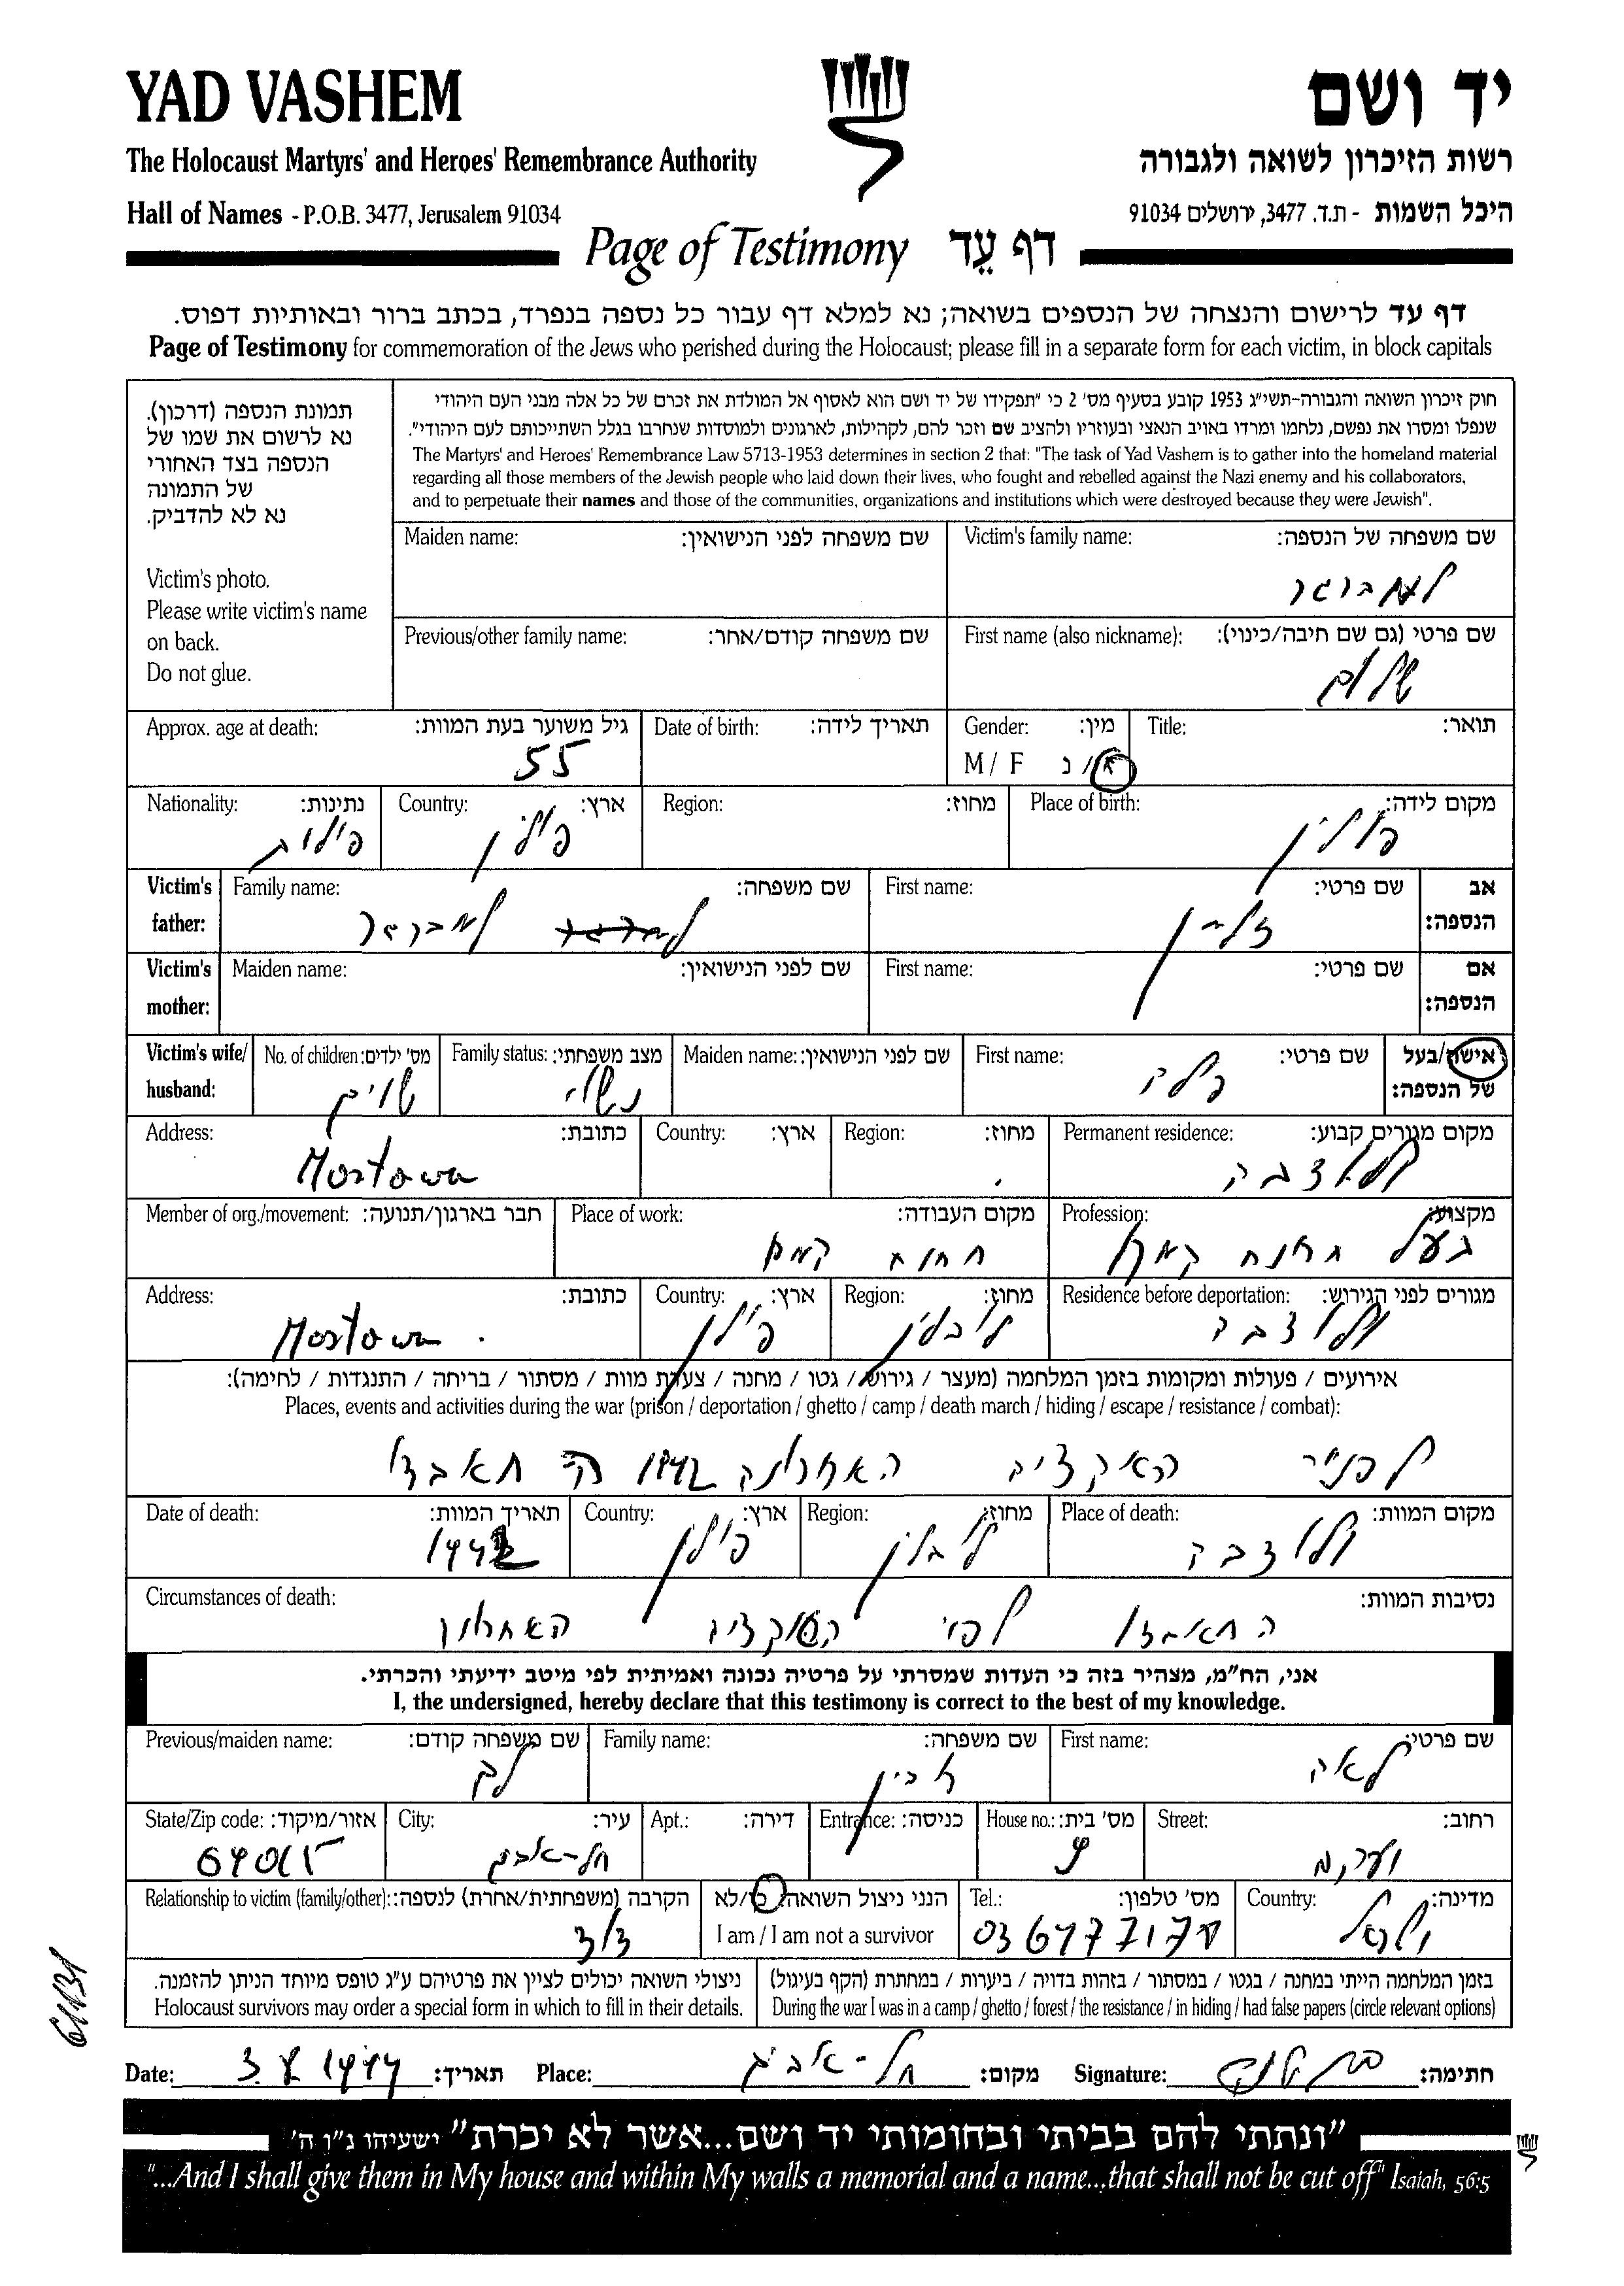 YAD VASHEM
יד ושם
The Holocaust Martyrs' and Heroes' Remembrance Authority
רשות הזיכרון לשואה ולגבורה
Hall of Names - P.O.B. 3477, Jerusalem 91034
היכל השמות - ת.ד. 3477, ירושלים 91034
Page of Testimony דף עֵד
דף עד לרישום והנצחה של הנספים בשואה; נא למלא דף עבור כל נספה בנפרד, בכתב ברור ובאותיות דפוס.
Page of Testimony for commemoration of the Jews who perished during the Holocaust; please fill in a separate form for each victim, in block capitals
תמונת הנספה (דרכון).
נא לרשום את שמו של
הנספה בצד האחורי
של התמונה
נא לא להדביק.
Victim's photo.
Please write victim's name
on back.
Do not glue.
חוק זיכרון השואה והגבורה-תשי"ג 1953 קובע בסעיף מס' 2 כי "תפקידו של יד ושם הוא לאסוף אל המולדת את זכרם של כל אלה מבני העם היהודי
שנפלו ומסרו את נפשם, נלחמו ומרדו באויב הנאצי ובעוזריו ולהציב שם וזכר להם, לקהילות, לארגונים ולמוסדות שנחרבו בגלל השתייכותם לעם היהודי".
The Martyrs' and Heroes' Remembrance Law 5713-1953 determines in section 2 that: "The task of Yad Vashem is to gather into the homeland material
regarding all those members of the Jewish people who laid down their lives, who fought and rebelled against the Nazi enemy and his collaborators,
and to perpetuate their names and those of the communities, organizations and institutions which were destroyed because they were Jewish".
Victim's family name: שם משפחה של הנספה:
Maiden name: שם משפחה לפני הנישואין:
First name (also nickname): שם פרטי (גם שם חיבה/כינוי):
שלום
Previous/other family name: שם משפחה קודם/אחר:
Title: תואר:
Gender: מין:
M / F ז/נ
Date of birth: תאריך לידה:
Approx. age at death: גיל משוער בעת המוות:
55
Place of birth: מקום לידה:
פולין
Region: מחוז:
Country: ארץ:
פולין
Nationality: נתינות:
Victim's father: אב הנספה:
First name: שם פרטי:
זלמן
Family name: שם משפחה:
למברגר
Victim's mother: אם הנספה:
First name: שם פרטי:
Maiden name: שם לפני הנישואין:
Victim's wife/ husband: אישה/בעל של הנספה:
First name: שם פרטי:
Maiden name: שם לפני הנישואין:
Family status: מצב משפחתי:
נשוי
No. of children: מס' ילדים:
Permanent residence: מקום מגורים קבוע:
Region: מחוז:
Country: ארץ:
Address: כתובת:
Mostowa
Profession: מקצוע:
בעל קמח
Place of work: מקום העבודה:
קמח
Member of org./movement: חבר בארגון/תנועה:
Residence before deportation: מגורים לפני הגירוש:
Region: מחוז:
לובלין
Country: ארץ:
פולין
Address: כתובת:
Mostowa
אירועים / פעולות ומקומות בזמן המלחמה (מעצר / גירוש / גטו / מחנה / צעדת מוות / מסתור / בריחה / התנגדות / לחימה):
Places, events and activities during the war (prison / deportation / ghetto / camp / death march / hiding / escape / resistance / combat):
לפני האקציה האחרונה 1942 התאבד
Place of death: מקום המוות:
Region: מחוז:
לובלין
Country: ארץ:
פולין
Date of death: תאריך המוות:
1942
Circumstances of death: נסיבות המוות:
התאבד לפני האקציה
אני, הח"מ, מצהיר בזה כי העדות שמסרתי על פרטיה נכונה ואמיתית לפי מיטב ידיעתי והכרתי.
I, the undersigned, hereby declare that this testimony is correct to the best of my knowledge.
First name: שם פרטי:
לאה
Family name: שם משפחה:
Previous/maiden name: שם משפחה קודם:
Street: רחוב:
House no.: מס' בית:
9
Entrance: כניסה:
Apt.: דירה:
City: עיר:
תל-אביב
State/Zip code: אזור/מיקוד:
Country: מדינה:
ישראל
Tel.: מס' טלפון:
הנני ניצול השואה: כן/לא
I am / I am not a survivor
Relationship to victim (family/other): הקרבה (משפחתית/אחרת) לנספה:
דוד
בזמן המלחמה הייתי במחנה / בגטו / במסתור / בזהות בדויה / ביערות / במחתרת (הקף בעיגול)
During the war I was in a camp / ghetto / forest / the resistance / in hiding / had false papers (circle relevant options)
ניצולי השואה יכולים לציין את פרטיהם ע"ג טופס מיוחד הניתן להזמנה.
Holocaust survivors may order a special form in which to fill in their details.
Signature: חתימה:
Place: תל-אביב מקום:
Date: תאריך:
"ונתתי להם בביתי ובחומותי יד ושם...אשר לא יכרת" ישעיהו נ"ו ה'
"...And I shall give them in My house and within My walls a memorial and a name...that shall not be cut off" Isaiah, 56:5